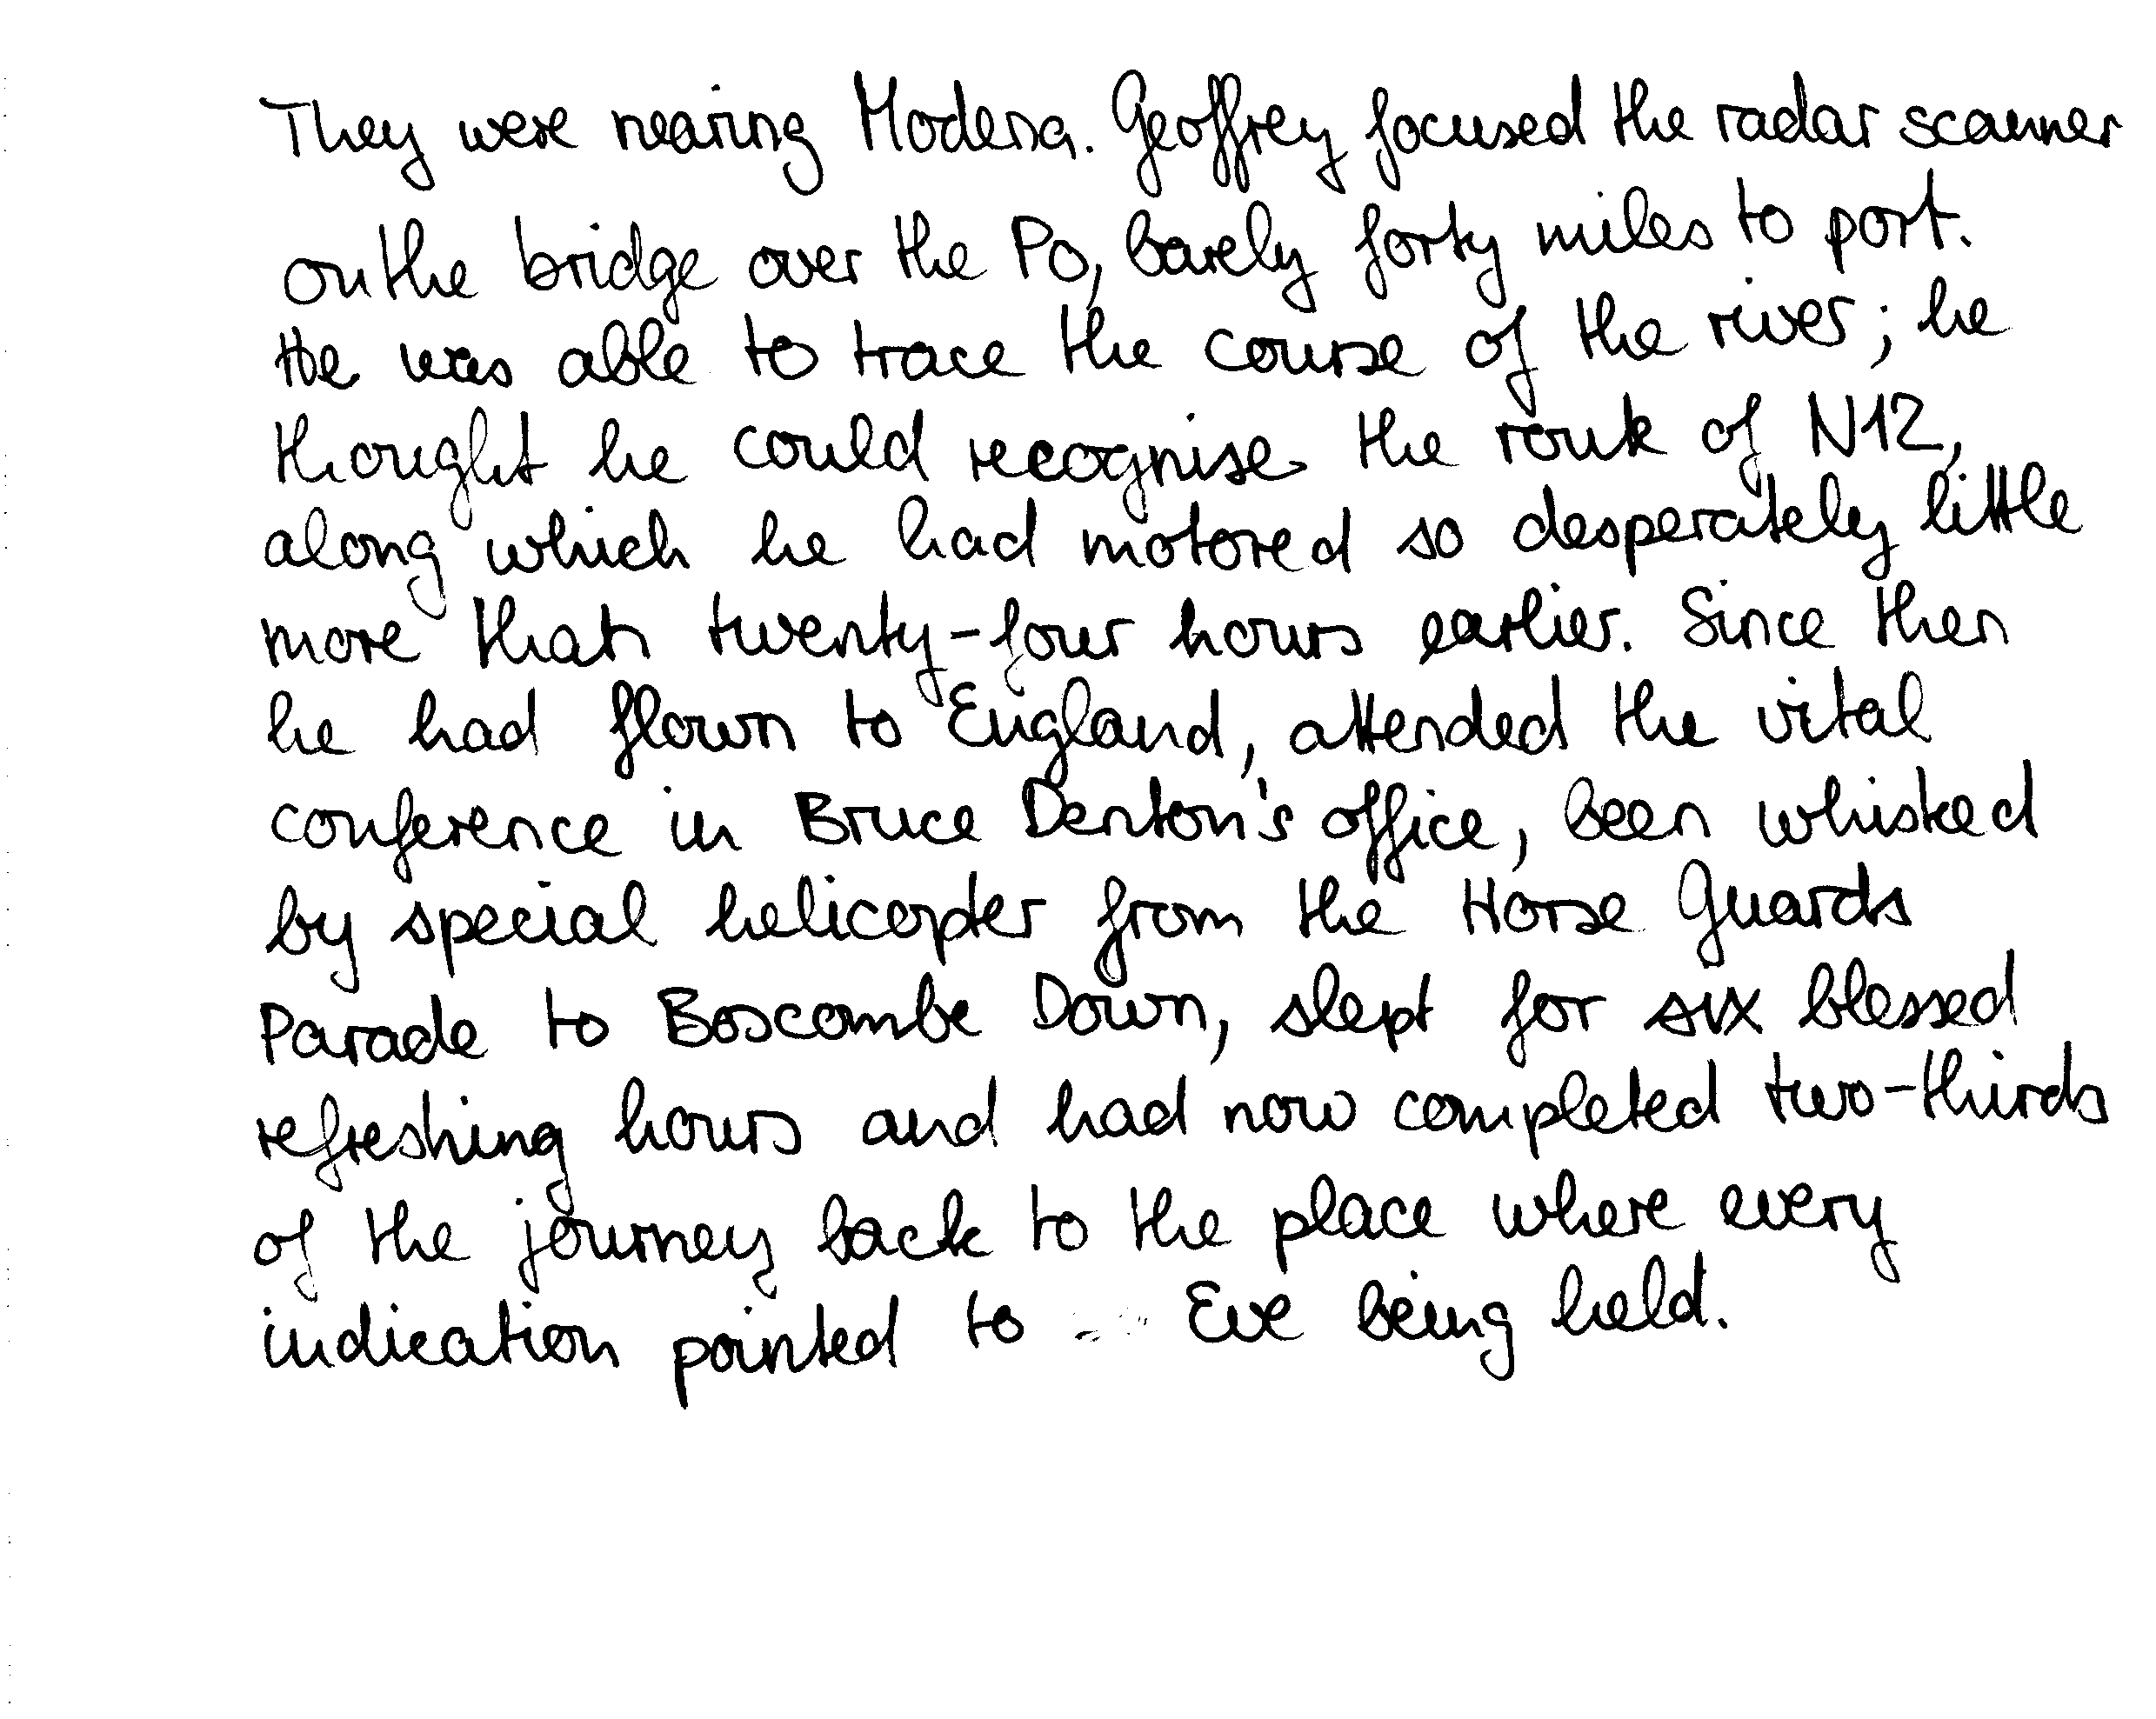 They were nearing Modena. Geoffrey focused the radar scanner
on the bridge over the Po, barely forty miles to port.
He was able to trace the course of the river; he
thought he could recognise the route of N12,
along which he had motored so desperately little
more than twenty-four hours earlier. Since then
he had flown to England, attended the vital
conference in Bruce Denton's office, been whisked
by special helicopter from the Horse Guards
Parade to Boscombe Down, slept for six blessed
refreshing hours and had now completed two-thirds
of the journey back to the place where every
indication pointed to Eve being held.